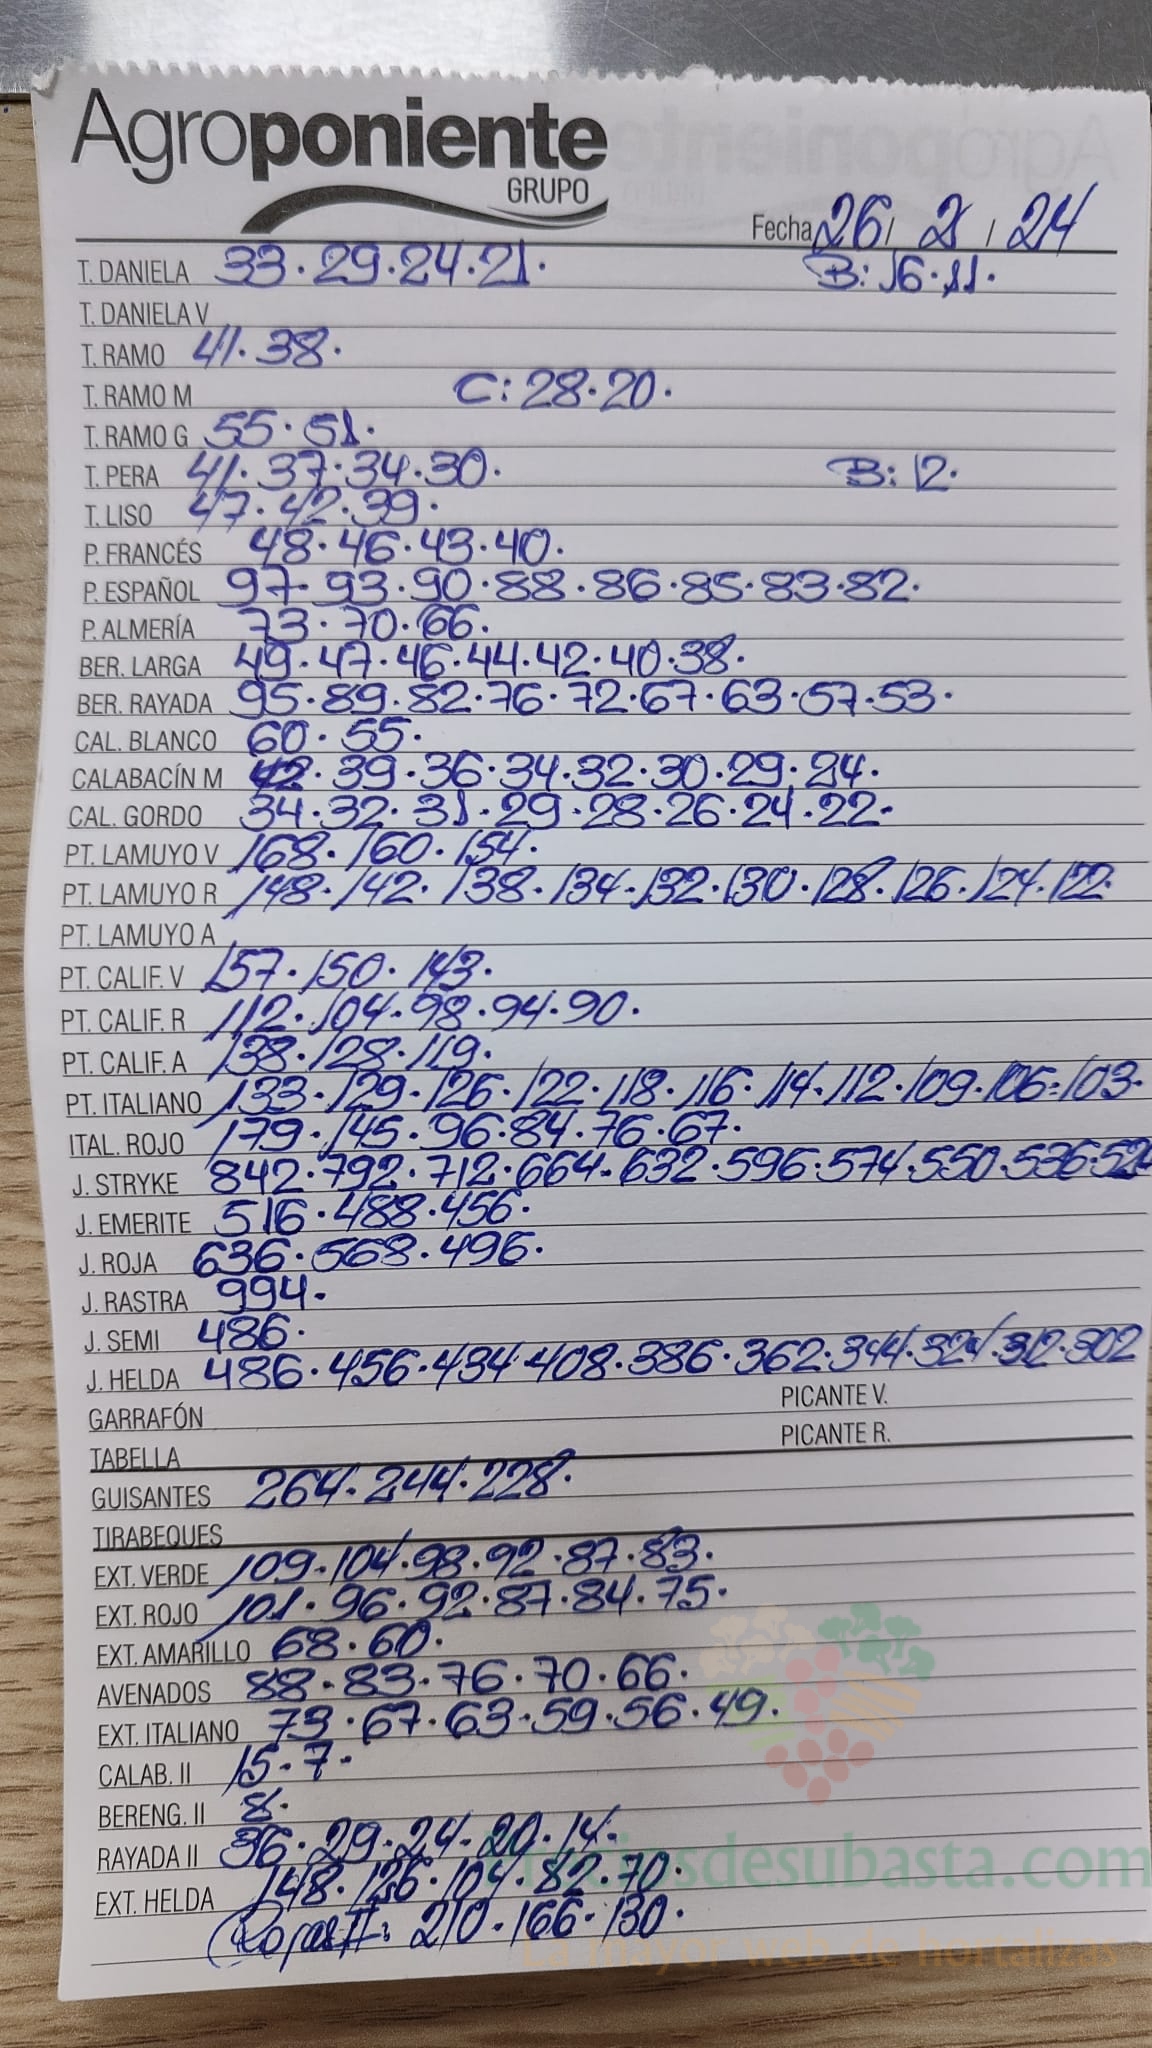 Agroponiente
GRUPO
Fecha 26 / 2 / 24
T. DANIELA 33 · 29 · 24 · 21 · B: 16 · 11 ·
T. DANIELA V
T. RAMO 41 · 38 ·
T. RAMO M C: 28 · 20 ·
T. RAMO G 55 · 51 ·
T. PERA 41 · 37 · 34 · 30 · B: 12 ·
T. LISO 47 · 42 · 39 ·
P. FRANCÉS 48 · 46 · 43 · 40 ·
P. ESPAÑOL 97 · 93 · 90 · 88 · 86 · 85 · 83 · 82 ·
P. ALMERÍA 73 · 70 · 66 ·
BER. LARGA 49 · 47 · 46 · 44 · 42 · 40 · 38 ·
BER. RAYADA 95 · 89 · 82 · 76 · 72 · 67 · 63 · 57 · 53 ·
CAL. BLANCO 60 · 55 ·
CALABACÍN M 42 · 39 · 36 · 34 · 32 · 30 · 29 · 24 ·
CAL. GORDO 34 · 32 · 31 · 29 · 28 · 26 · 24 · 22 ·
PT. LAMUYO V 168 · 160 · 154 ·
PT. LAMUYO R 148 · 142 · 138 · 134 · 132 · 130 · 128 · 126 · 124 · 122 ·
PT. LAMUYO A
PT. CALIF. V 157 · 150 · 143 ·
PT. CALIF. R 112 · 104 · 98 · 94 · 90 ·
PT. CALIF. A 138 · 128 · 119 ·
PT. ITALIANO 133 · 129 · 126 · 122 · 118 · 116 · 114 · 112 · 109 · 106 · 103 ·
ITAL. ROJO 179 · 145 · 96 · 84 · 76 · 67 ·
J. STRYKE 842 · 792 · 712 · 664 · 632 · 596 · 574 · 550 · 536 · 524
J. EMERITE 516 · 488 · 456 ·
J. ROJA 636 · 568 · 496 ·
J. RASTRA 994 ·
J. SEMI 486 ·
J. HELDA 486 · 456 · 434 · 408 · 386 · 362 · 344 · 324 · 312 · 302
GARRAFÓN PICANTE V.
TABELLA PICANTE R.
GUISANTES 264 · 244 · 228 ·
TIRABEQUES
EXT. VERDE 109 · 104 · 98 · 92 · 87 · 83 ·
EXT. ROJO 101 · 96 · 92 · 87 · 84 · 75 ·
EXT. AMARILLO 68 · 60 ·
AVENADOS 88 · 83 · 76 · 70 · 66 ·
EXT. ITALIANO 73 · 67 · 63 · 59 · 56 · 49 ·
CALAB. II 15 · 7 ·
BERENG. II 8 ·
RAYADA II 36 · 29 · 24 · 20 · 14 ·
EXT. HELDA 148 · 126 · 104 · 82 · 70 ·
Rojas II: 210 · 166 · 130 ·
desubasta.com
La mayor web de hortalizas